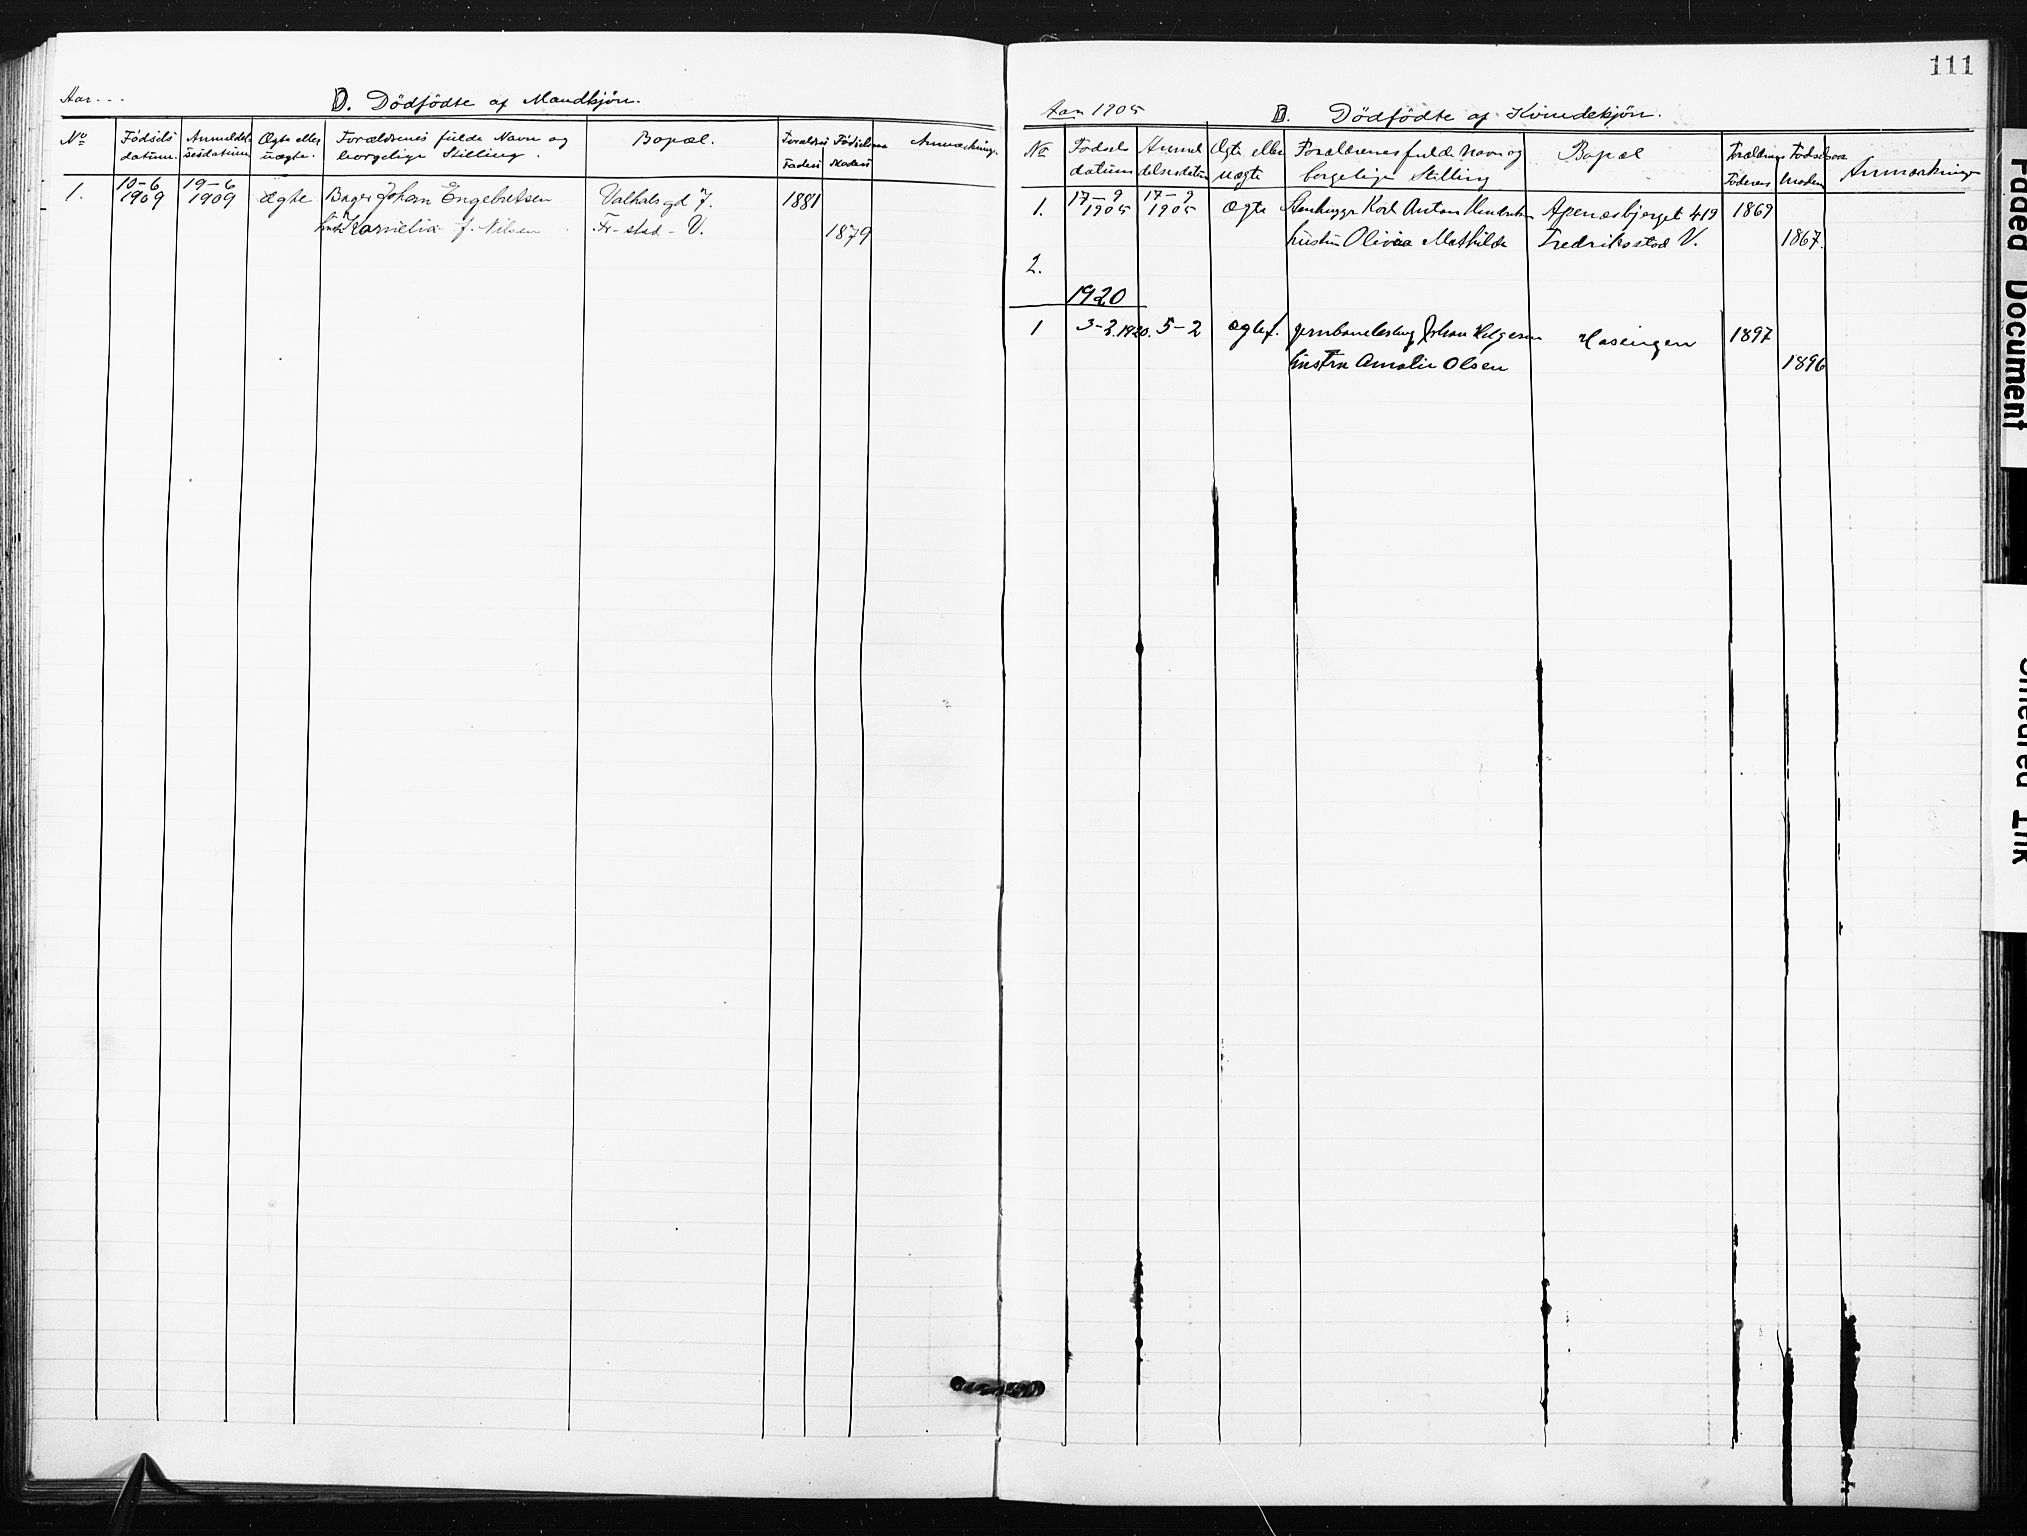 Aar...
D. Dödfödte af Mandkjön.
No
Födsels datum.
Anmeldelsesdatum
Ægte eller uægte.
Forældrenes fulde Navn og borgelige Stilling.
Bopæl.
Forældres Fødselsaar
Faders
Moders
Anmærkning.
1.
10-6 1909
19-6 1909
ægte
Bager Johan Engebretsen
Valhalsgd 7.
1881
Kornelia f. Nilsen
Fr-stad - V.
1879
111
Aar 1905
D. Dödfödte af Kvindekjön.
No
Fødsels datum
Anmeldelsesdatum
Ægte eller uægte
Forældrenes fulde Navn og borgelige Stilling
Bopæl
Forældrenes Fødselsaar
Faderens
Modern
Anmærkning
1.
17-9 1905
17-9 1905
ægte
Stenhugger Karl Anton
Apenæsbjerget 419
1869
hustru Olivia Mathilde
Fredriksstad V.
1867.
2.
1920
1
3-2.1920.
5-2
ægtef.
Johan Helgesen
1897
hustru Amalie Olsen
1896
Faded Document
Smeared Ink